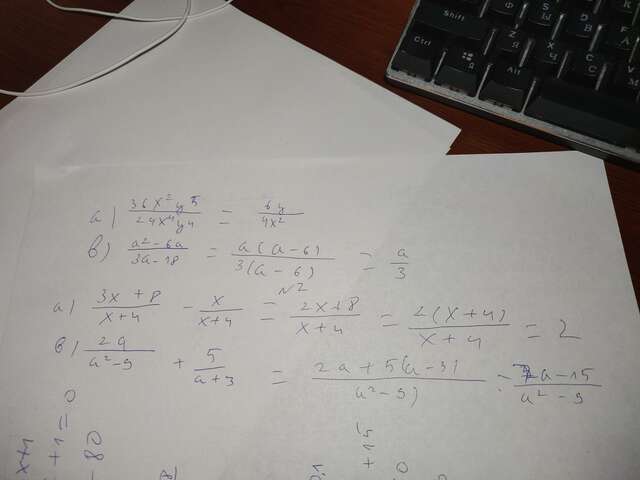 Shift
Ctrl
Alt
Ф
Ы
В
Я
Ч
С
а) 36x²y⁵/24x⁴y4 = 6y/4x²
в) a²-6a/3a-18 = a(a-6)/3(a-6) = a/3
№2
а) 3x+8/x+4 - x/x+4 = 2x+8/x+4 = 2(x+4)/x+4 = 2
в) 2a/a²-9 + 5/a+3 = 2a+5(a-3)/a²-9) = 7a-15/a²-9
x+1
+1=0
-80